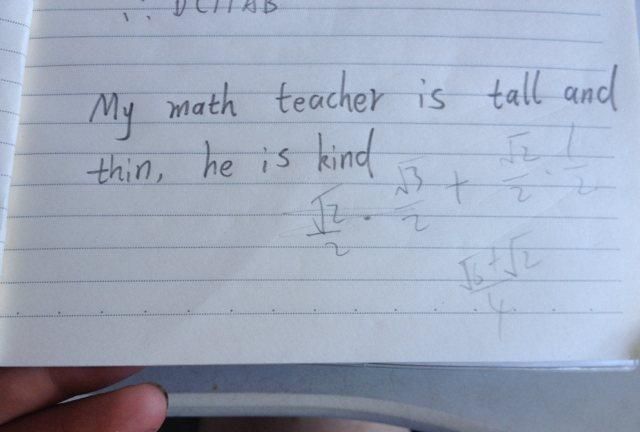 ∴ DC∥AB
My math teacher is tall and
thin, he is kind
√2/2 · √3/2 + √2/2 · 1/2
(√6+√2)/4